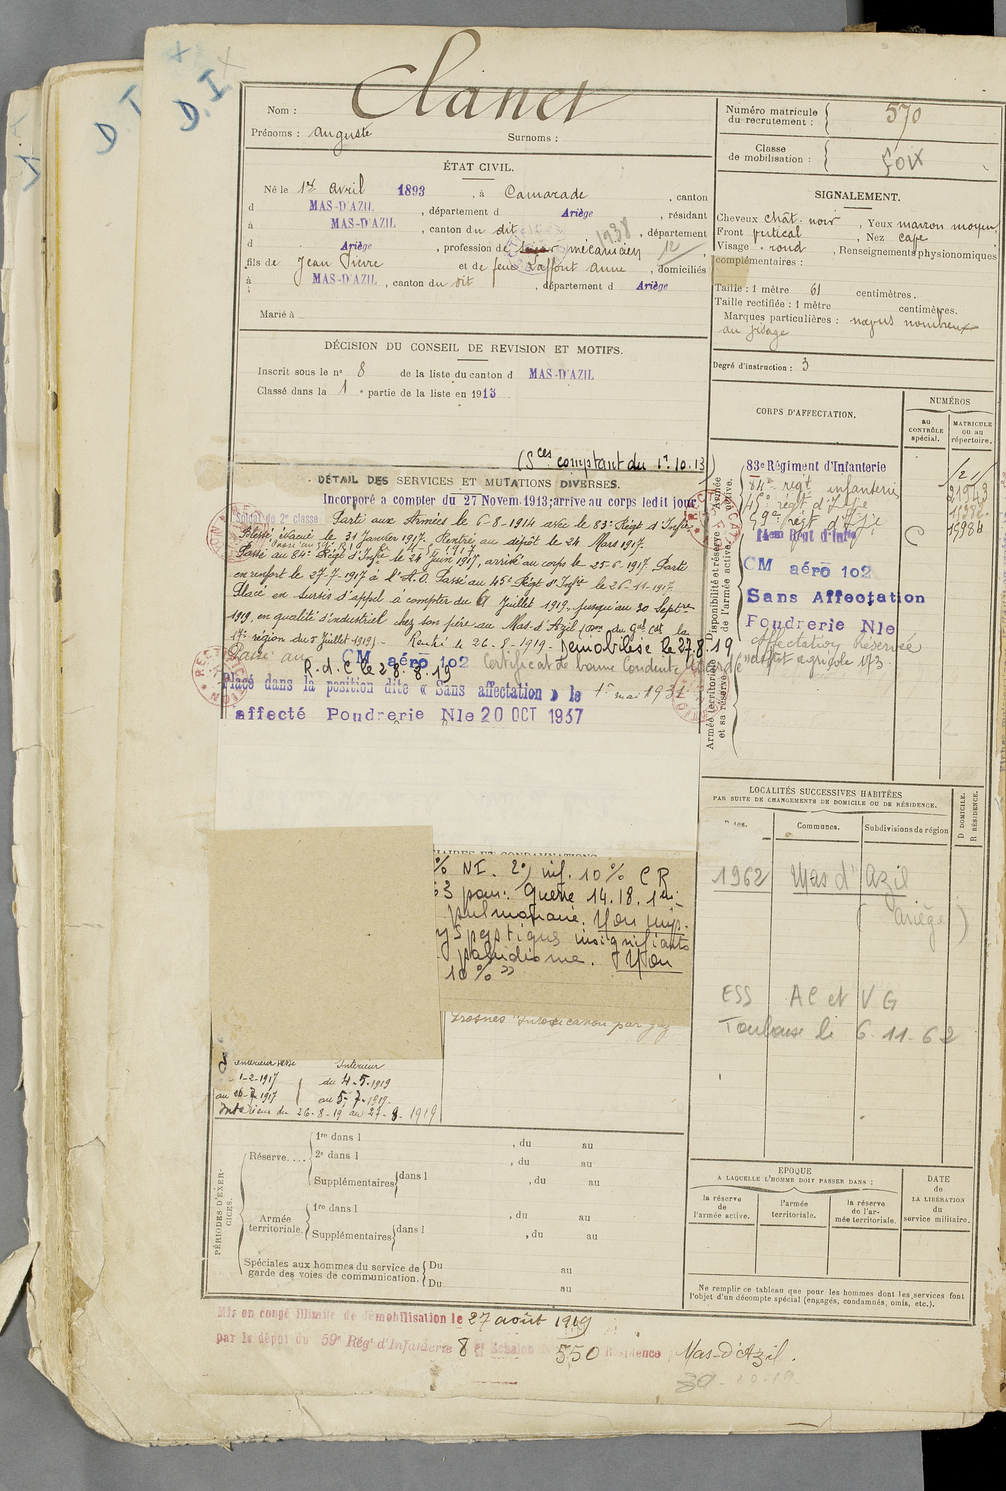 D. I
D. I
Clanet
Nom :
Prénoms : Auguste Surnoms :
Numéro matricule du recrutement : 570
Classe de mobilisation : Foix
ÉTAT CIVIL.
Né le 1er avril 1893, à Camarade, canton
d MAS-D'AZIL, département d Ariège, résidant
à MAS-D'AZIL, canton du dit, département
d Ariège, profession de mécanicien 1938
fils de Jean Pierre et de feue Laffont Anne, domiciliés
à MAS-D'AZIL, canton du dit, département d Ariège
Marié à
SIGNALEMENT.
Cheveux chât. noir, Yeux marron moyen
Front vertical, Nez cave
Visage rond, Renseignements physionomiques
complémentaires :
Taille : 1 mètre 61 centimètres.
Taille rectifiée : 1 mètre centimètres.
Marques particulières : nævus nombreux
au visage
Degré d'instruction : 3
DÉCISION DU CONSEIL DE REVISION ET MOTIFS.
Inscrit sous le no 8 de la liste du canton d MAS-D'AZIL
Classé dans la 1e partie de la liste en 1913
(Sces comptant du 1r.10.13)
DÉTAIL DES SERVICES ET MUTATIONS DIVERSES.
Incorporé a compter du 27 Novem. 1913; arrive au corps ledit jour
Soldat de 2e classe Parti aux Armées le 6-8-1914 avec le 83e Régt d'Infie
Blessé, évacué le 31 Janvier 1917. Rentré au dépôt le 24 Mars 1917.
Passé au 84e Régt d'Infie le 24 Juin 1917, arrivé au corps le 25-6-1917 Parti
en renfort le 27-7-1917 à l'A.O. Passé au 45e Régt d'Infie le 26-11-1917.
Placé en sursis d'appel à compter du 6 Juillet 1919, jusqu'au 30 Septbre
1919, en qualité d'industriel chez son père au Mas-d'Azil (Don du Gal Ct la
17e région du 5 juillet 1919) - Rentré le 26-8-1919 - Démobilisé le 27.8.19
Passé au CM aéro 102 Certificat de bonne Conduite accordé
R.d.C le 28.8.19
Placé dans la position dite « Sans affectation » le 1er mai 1931
affecté Poudrerie Nle 20 OCT 1937
CORPS D'AFFECTATION.
NUMÉROS
au CONTRÔLE spécial.
MATRICULE ou au répertoire.
Disponibilité et réserve de l'armée active.
Armée active.
Armée territoriale et sa réserve.
83e Régiment d'Infanterie
84e régt infanterie
45e régt d'Infie
59e régt d'Infie
14em Régt d'Infie
C
CM aéro 102
Sans Affectation
Poudrerie Nle
Affectation Réservée
LOCALITÉS SUCCESSIVES HABITÉES
PAR SUITE DE CHANGEMENTS DE DOMICILE OU DE RÉSIDENCE.
Dates. Communes. Subdivisions de région
D DOMICILE. R RÉSIDENCE.
1962 Mas d'Azil
(Ariège)
ESS AC et VG
Toulouse le 6.11.62
% NI. 2°) inf. 10% CR
pour: Guerre 14.18. 1°)
pulmonaire. Non imp.
dyspeptique insignifiants
paludisme. Non
10% »
Intoxication par gaz
Intérieur
1-2-1917 du 4-5-1919
au 26-7-1917 au 5-7-1919.
Intérieur du 26-8-19 au 27-8-1919
PÉRIODES D'EXERCICES.
Réserve....
1re dans l , du au
2e dans l , du au
Supplémentaires dans l , du au
Armée territoriale.
1re dans l , du au
Supplémentaires dans l , du au
Spéciales aux hommes du service de garde des voies de communication.
Du au
Du au
EPOQUE
A LAQUELLE L'HOMME DOIT PASSER DANS :
la réserve de l'armée active.
l'armée territoriale.
la réserve de l'armée territoriale.
DATE de LA LIBÉRATION du service militaire.
Ne remplir ce tableau que pour les hommes dont les services font
l'objet d'un décompte spécial (engagés, condamnés, omis, etc.).
Mis en congé illimité de démobilisation le 27 août 1919
par le dépôt du 59e Régt d'Infanterie 8e Echelon 550 Résidence Mas-d'Azil.